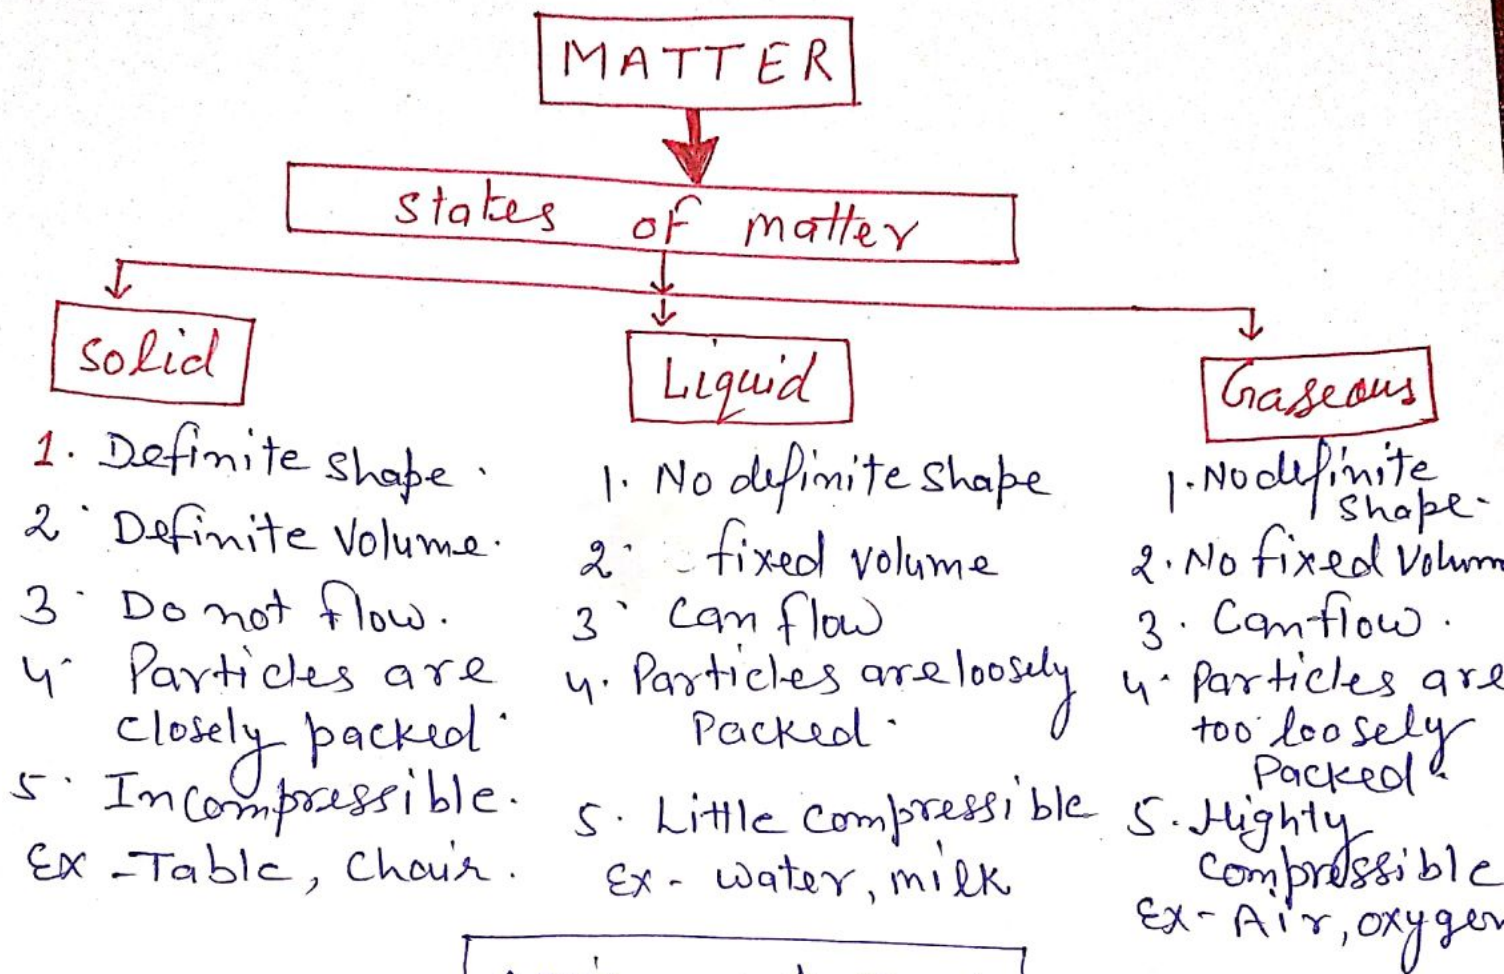 MATTER
states of matter
Solid
1. Definite shape.
2. Definite Volume.
3. Do not flow.
4. Particles are
closely packed.
5. Incompressible.
Ex - Table, Chair.
Liquid
1. No definite shape
2. fixed volume
3. Can flow
4. Particles are loosely
Packed.
5. Little compressible
Ex - water, milk
Gaseous
1. No definite
shape.
2. No fixed Volum
3. Can flow.
4. Particles are
too loosely
Packed.
5. Highty
compressible
Ex - Air, oxygen